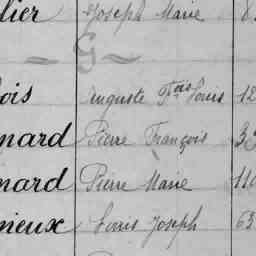 lier Joseph Marie 8
G
ois Auguste Fçois Louis 12
nard Pierre François 33
nard Pierre Marie 110
nieux Louis Joseph 63